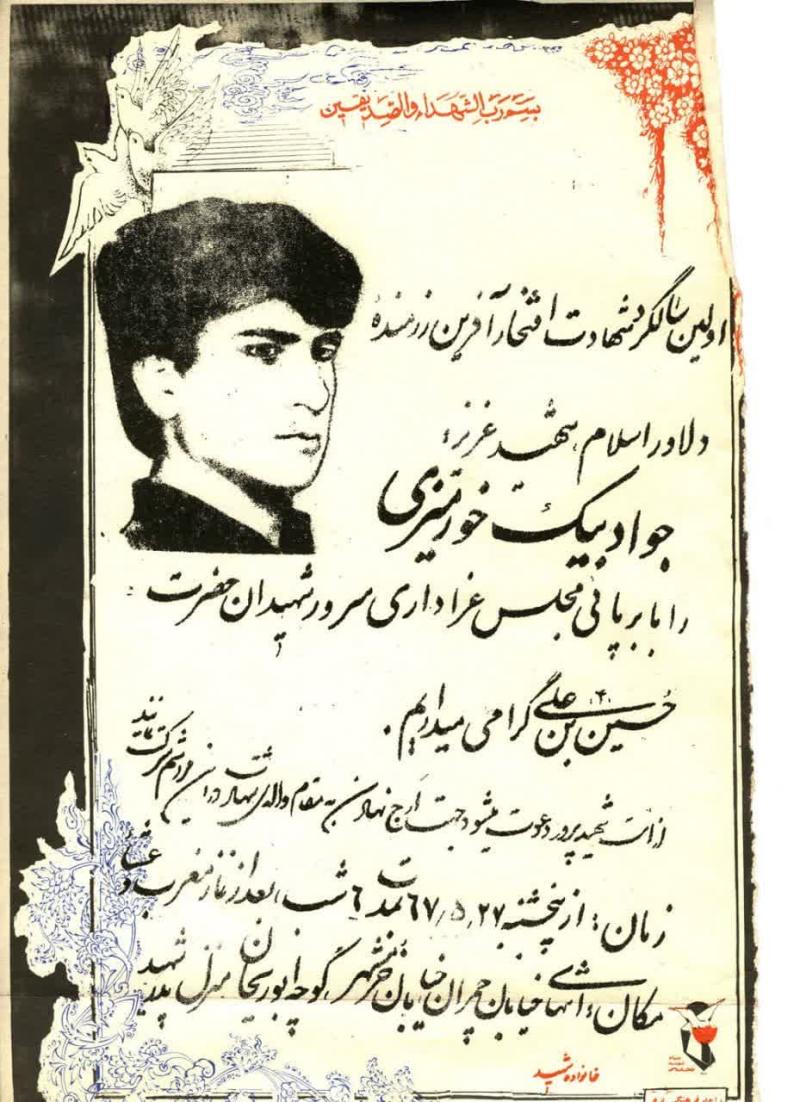 بسم رب الشهداء والصدیقین
اولین سالگرد شهادت افتخارآفرین رزمندهٔ
دلاور اسلام، شهید عزیز؛
جواد بیک خورمیزی
را با برپائی مجلس عزاداری سرور شهیدان حضرت
حسین بن علی (ع) گرامی میداریم.
از امت شهید پرور دعوت میشود جهت ارج نهادن به مقام والای شهادت در این مراسم شرکت نمایند
زمان: از پنجشنبه ۶۷/۵/۲۷ بمدت ۶ شب، بعد از نماز مغرب و عشاء
مکان: انتهای خیابان چمران خیابان خرمشهر کوچه ابوریحان منزل پدر شهید
خانواده شهید